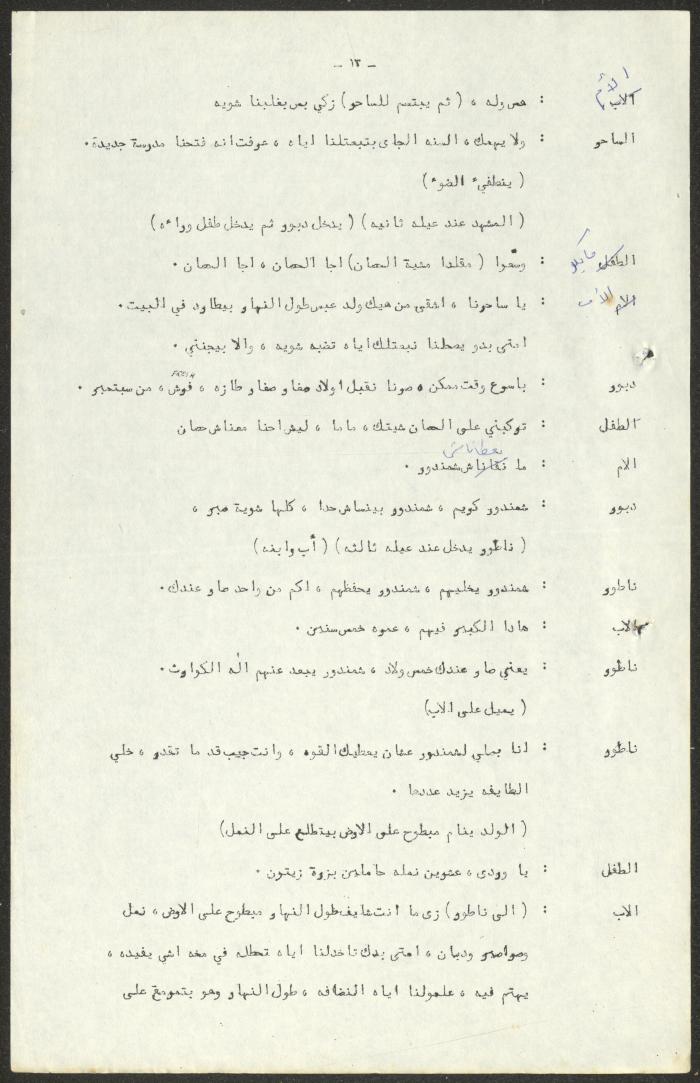 - ١٣ -
الأم
الاب : حص وله ، ( ثم يبتسم للساحر ) زكي بس بغلبنا شويه
الساحر : ولا يهمك ، السنه الجاي بتبعتلنا اياه ، عرفت انه فتحنا مدرسة جديدة .
( ينطفيء الضوء )
( المشهد عند عيله ثانيه ) ( يدخل دبور ثم يدخل طفل وراءه )
الطفل : وسّعوا ( مقلدا مشية الحصان ) اجا الحصان ، اجا الحصان .
الام الأب : يا ساحرنا ، اشقى من هيك ولد عبس طول النهار بيطارد في البيت .
امتى بدو يصحلنا نبعتلك اياه تضبه شويه ، والا بيجنني .
دبور : باسرع وقت ممكن ، صرنا نقبل اولاد صغار صغار طازه ، فرش ، من سبتمبر .
الطفل : تركبني على الحصان شيتك ، ماما ، ليش احنا معناش حصان
يعطاناش
الام : ما شمندور .
دبور : شمندور كريم ، شمندور بينساش حدا ، كلها شوية صبر ،
( ناطور يدخل عند عيله ثالثه ) ( أب وابنه )
ناطور : شمندور يخليهم ، شمندور يحفظهم ، اكم من واحد صار عندك .
الاب : هادا الكبير فيهم ، عمره خمس سنين .
ناطور : يعني صار عندك خمس ولاد ، شمندور يبعد عنهم اله الكوارث .
( يميل على الاب )
ناطور : انا بصلي لشمندور عشان يعطيك القوه ، وانت جيب قد ما تقدر ، خلي
الطايفه يزيد عددها .
( الولد ينام مبطوح على الارض بيتطلع على النمل )
الطفل : يا وردى ، عشرين نمله حاملين بزرة زيتون .
الاب : ( الى ناطور ) زى ما انت شايف طول النهار مبطوح على الارض ، نمل
وصراصير ودبان ، امتى بدك تاخدلنا اياه تحطله في مخه اشي يفيده ،
يهتم فيه ، علمولنا اياه النضافه ، طول النهار وهو بتمرمغ على